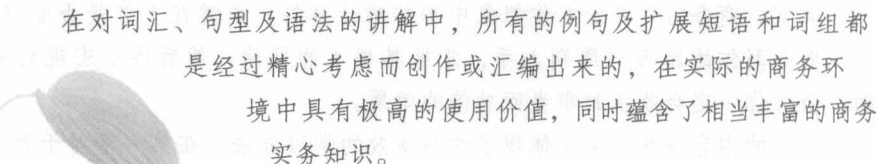 在对词汇、句型及语法的讲解中，所有的例句及扩展短语和词组都
是经过精心考虑而创作或汇编出来的，在实际的商务环
境中具有极高的使用价值，同时蕴含了相当丰富的商务
实务知识。